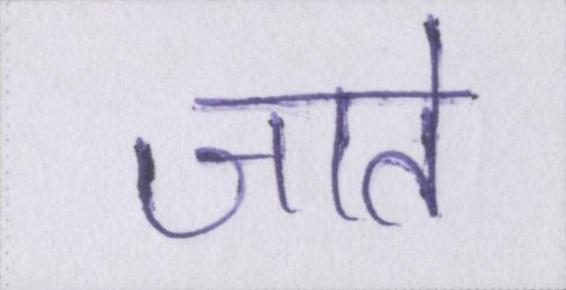 जाते